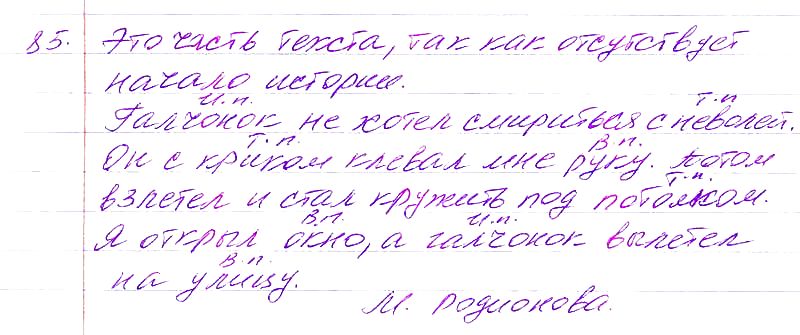 85. Это часть текста, так как отсутствует
начало истории.
И.п. Т.п
Галчонок не хотел смириться с неволей.
Т.п. В.п.
Он с криком клевал мне руку. Потом
Т.п.
взлетел и стал кружить под потолком.
В.п. И.п.
Я открыл окно, а галчонок вылетел
В.п.
на улицу.
М. Родионова.